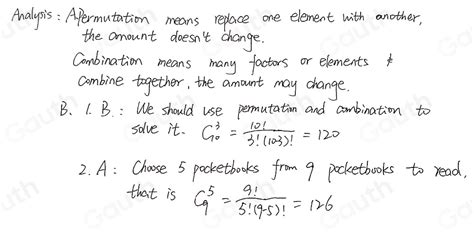 Analysis : A. Permutation means replace one element with another,
the amount doesn't change.
Combination means many factors or elements &
combine together, the amount may change.
B. 1. B. : We should use permutation and combination to
solve it. C₁₀³ = 10! / 3!(103)! = 120
2. A : Choose 5 pocketbooks from 9 pocketbooks to read,
that is C₉⁵ = 9! / 5!(9-5)! = 126